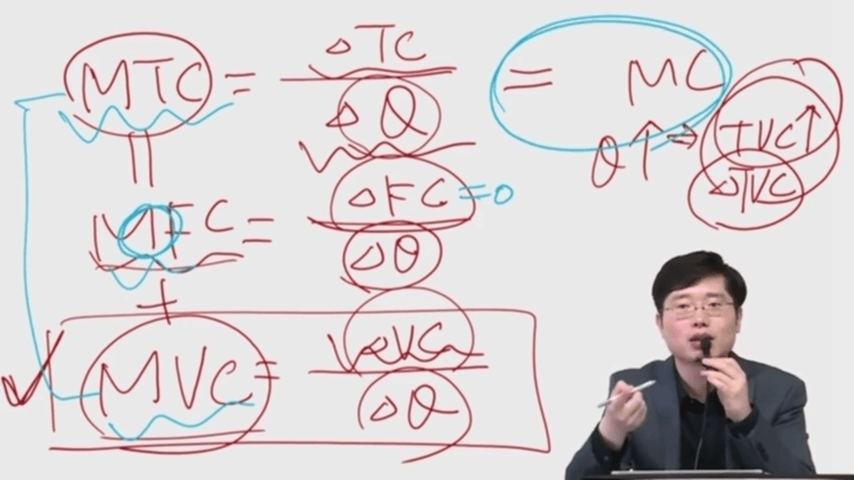 MTC = ΔTC / ΔQ = MC
Q↑ ⇒ TVC↑
ΔTVC
||
MFC = ΔFC / ΔQ = 0
+
MVC = ΔVC / ΔQ